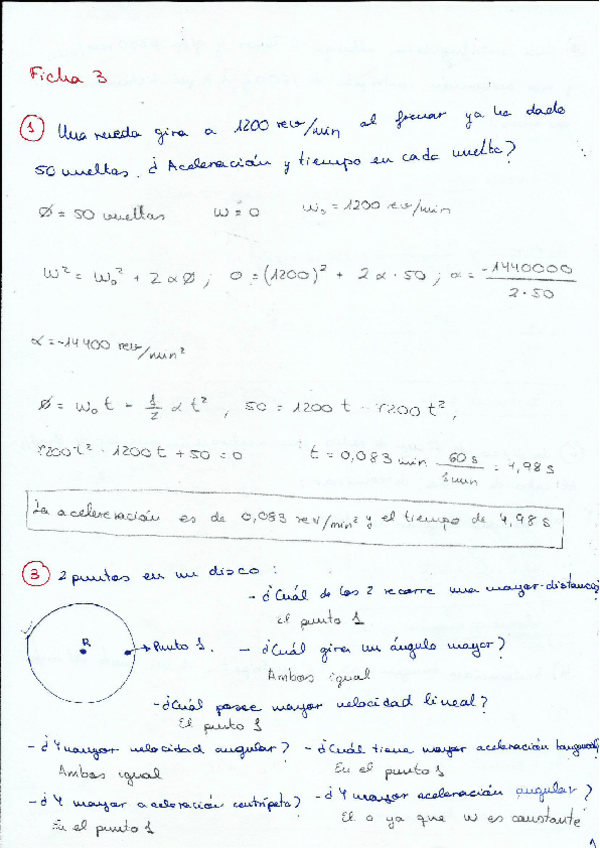 Ficha 3
① Una rueda gira a 1200 rev/min al frenar ya ha dado
50 vueltas. ¿Aceleración y tiempo en cada vuelta?
Ø = 50 vueltas W = 0 W₀ = 1200 rev/min
W² = W₀² + 2αØ ; 0 = (1200)² + 2α·50 ; α = -1440000 / 2·50
α = -14400 rev/min²
Ø = W₀t - 1/2 αt² , 50 = 1200t - 7200t² ,
7200t² - 1200t + 50 = 0 t = 0,083 min 60s/1min = 4,98s
La aceleración es de 0,083 rev/min² y el tiempo de 4,98 s
③ 2 puntos en un disco :
- ¿Cuál de los 2 recorre una mayor distancia?
El punto 1
R → Punto 1. - ¿Cuál gira un ángulo mayor?
Ambos igual
- ¿Cuál posee mayor velocidad lineal?
El punto 1
- ¿Y mayor velocidad angular? - ¿Cuál tiene mayor aceleración
Ambos igual En el punto 1
- ¿Y mayor aceleración centrípeta? - ¿Y mayor aceleración angular?
En el punto 1 El 0 ya que w es constante
1